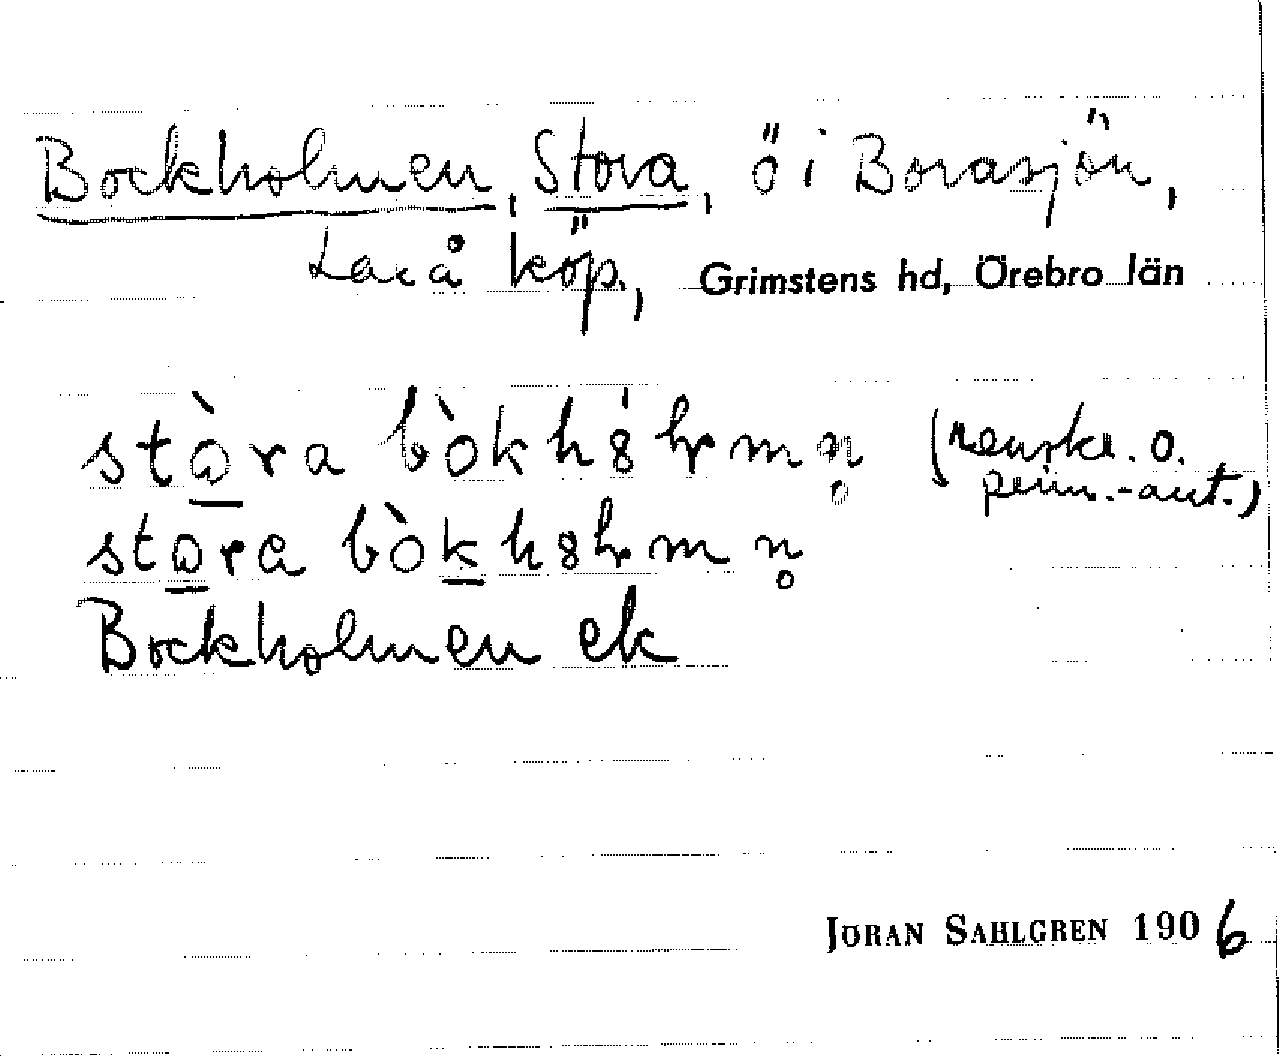 Bockholmen, Stora, ö i Borasjön,
Laxå köp., Grimstens hd, Örebro län
stòra bòkh8lmn̥ (renskr. o.
prim.-ant.)
stora bòkh8lmn̥
Bockholmen ek
JÖRAN SAHLGREN 1906